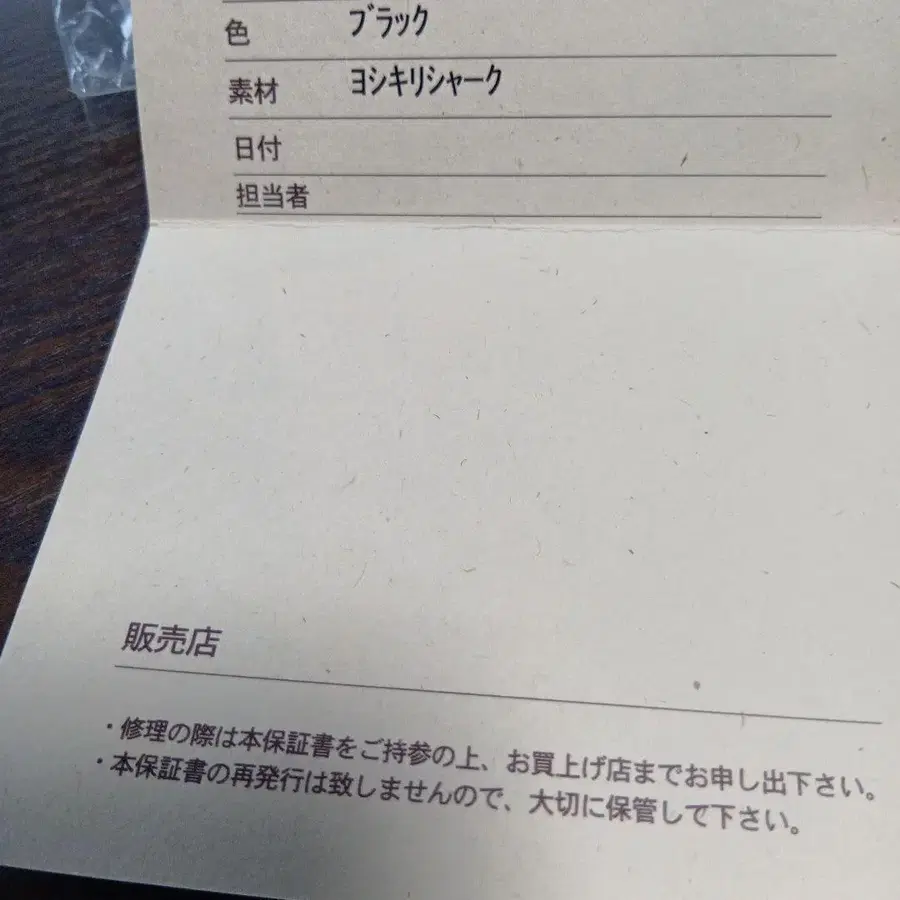 色 ブラック
素材 ヨシキリシャーク
日付
担当者
販売店
・修理の際は本保証書をご持参の上、お買上げ店までお申し出下さい。
・本保証書の再発行は致しませんので、大切に保管して下さい。